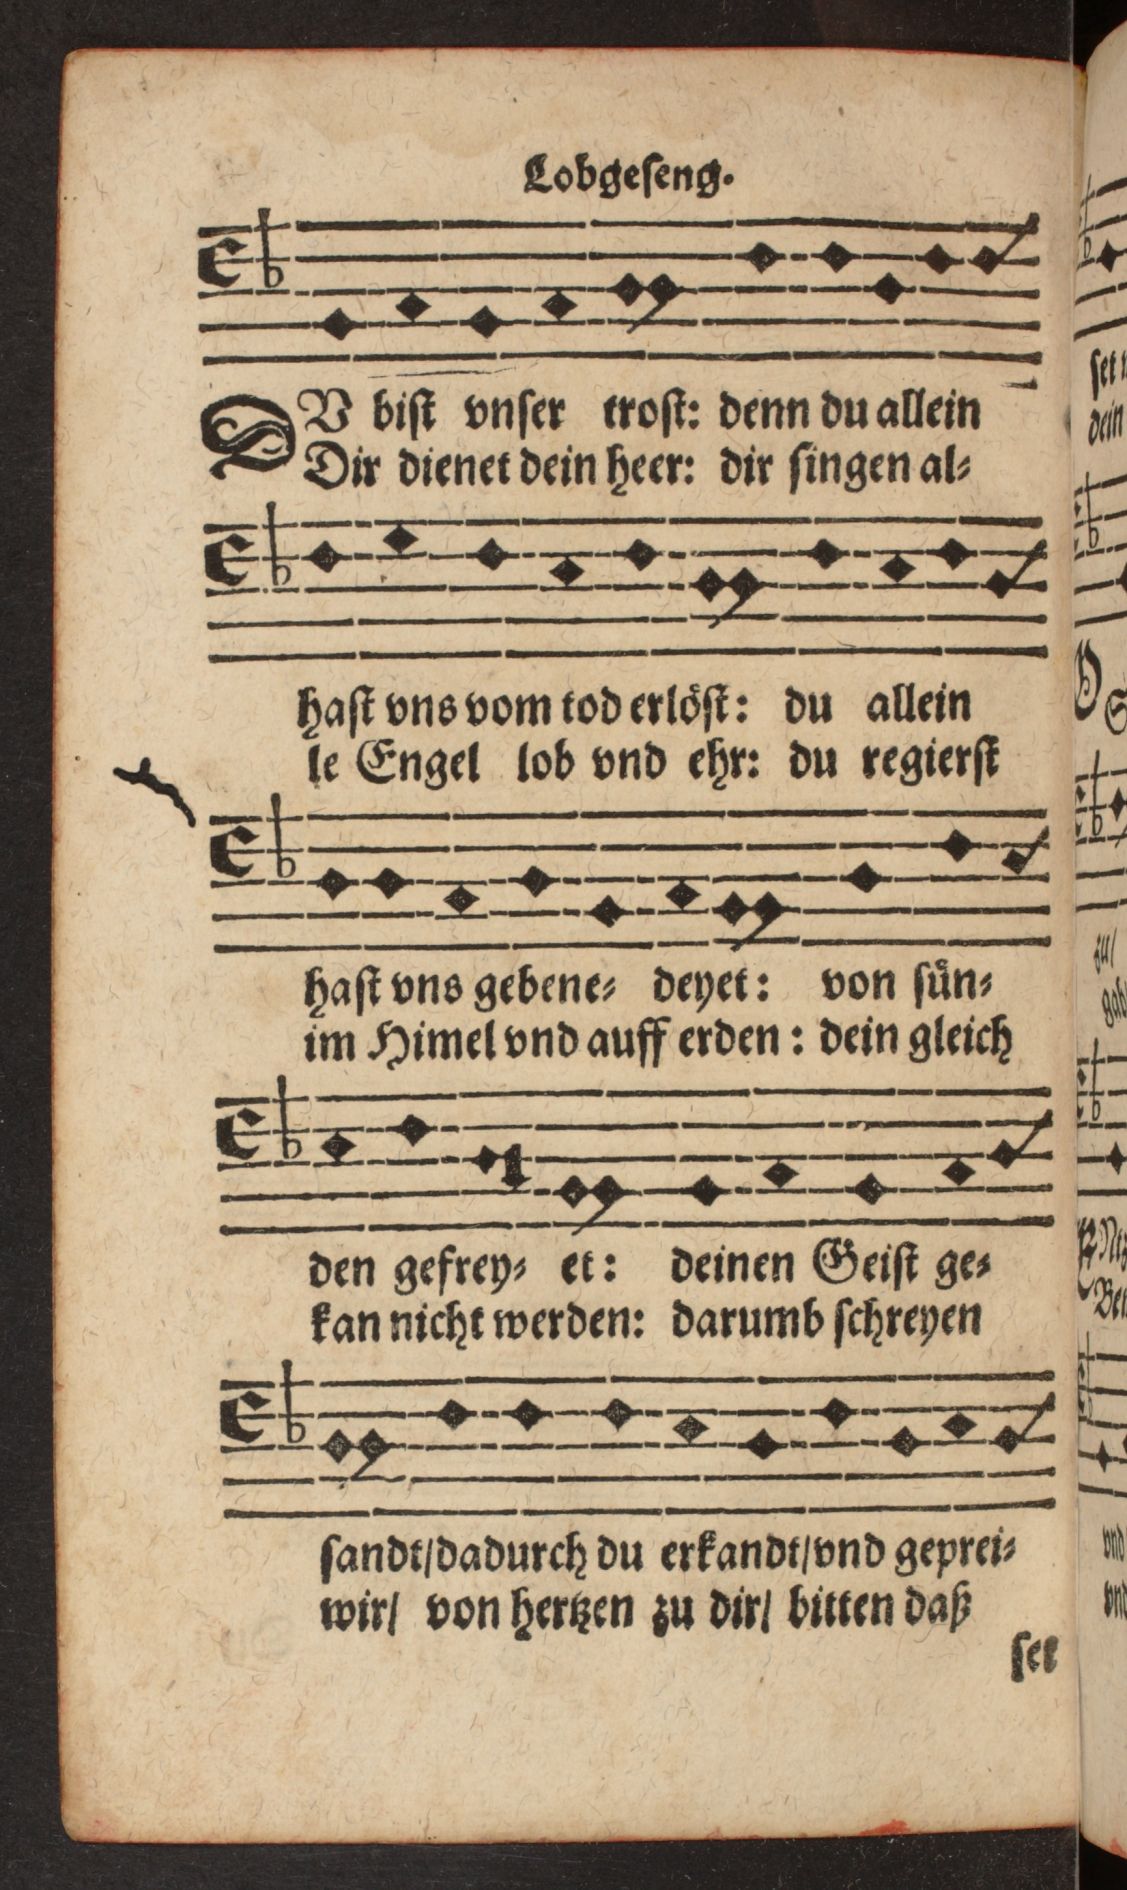 Lobgeſeng.
DV biſt vnſer troſt: denn du allein
Dir dienet dein heer: dir ſingen al⸗
haſt vns vom tod erlöſt: du allein
le Engel lob vnd ehr: du regierſt
haſt vns gebene⸗ deyet: von ſuͤn⸗
im Himel vnd auff erden: dein gleich
den gefrey⸗ et: deinen Geiſt ge⸗
kan nicht werden: darumb ſchreyen
ſandt/dadurch du erkandt/vnd geprei⸗
wir/ von hertzen zu dir/ bitten daß
ſet